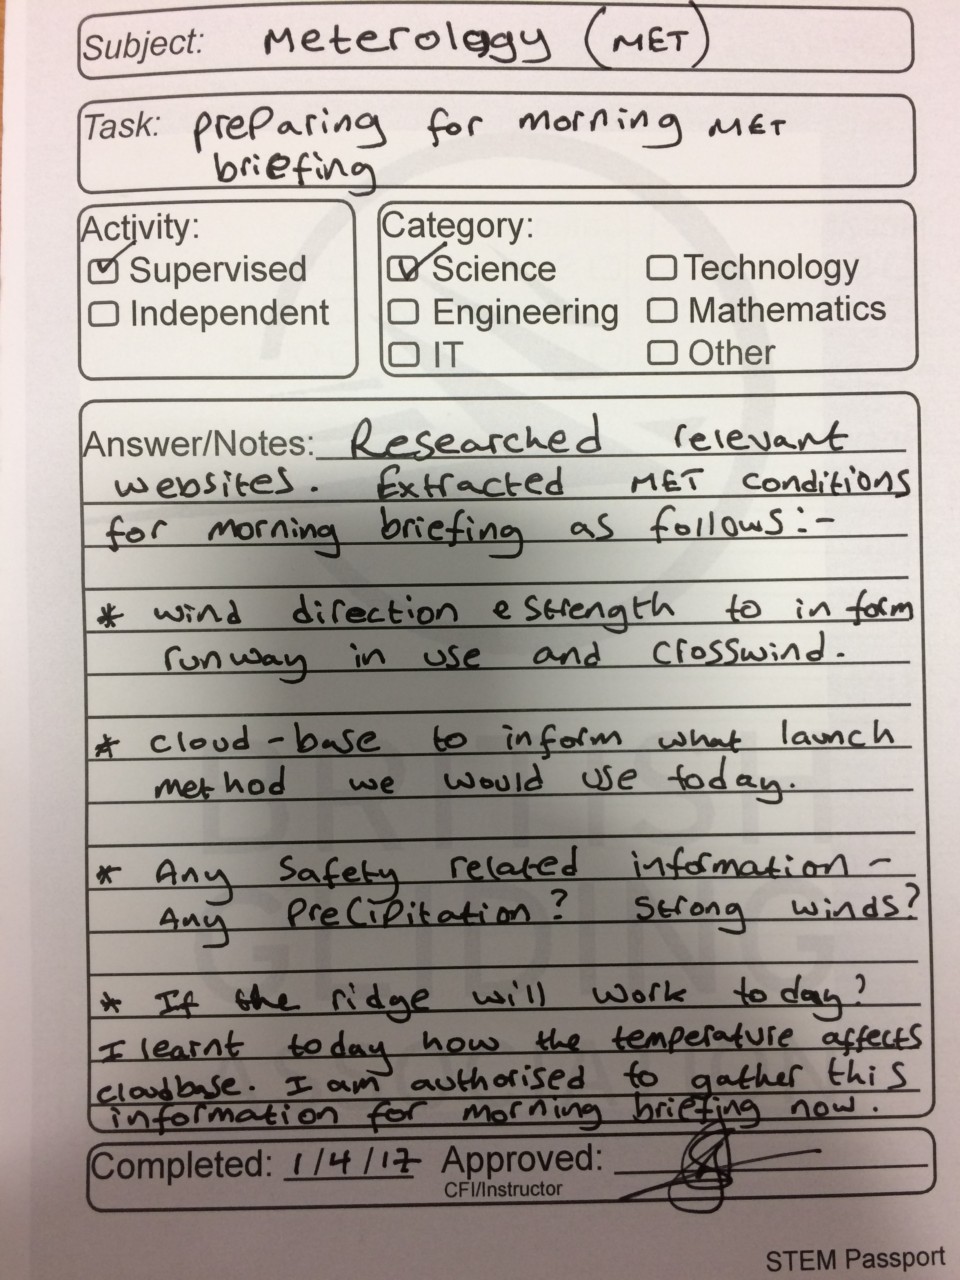 Subject: Meterology (MET)
Task: preparing for morning MET
briefing
Activity:
Supervised
Independent
Category:
Science
Technology
Engineering
Mathematics
IT
Other
Answer/Notes: Researched relevant
websites. Extracted MET conditions
for morning briefing as follows:-
* wind direction & strength to inform
runway in use and crosswind.
* cloud-base to inform what launch
method we would use today.
* Any safety related information -
Any precipitation? Strong winds?
* If the ridge will work today?
I learnt today how the temperature affects
cloudbase. I am authorised to gather this
information for morning briefing now.
Completed: 1/4/17 Approved:
CFI/Instructor
STEM Passport
BRITISH
GLIDING